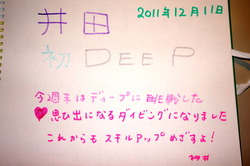 井田
2011年12月11日
初DEEP
今週末はディープに挑戦した
思ひ出になるダイビングになりました
これからもスキルアップめざすよ!